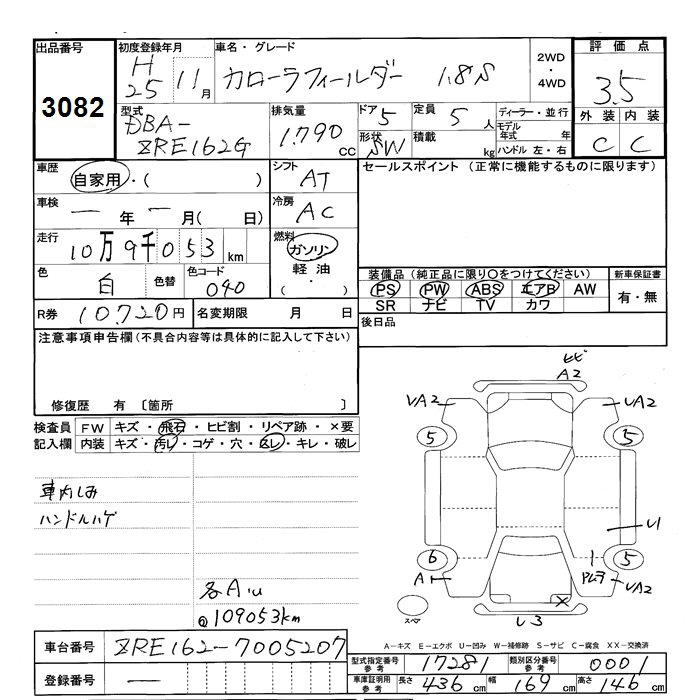 出品番号
3082
初度登録年月
H25 11月
車名・グレード
カローラフィールダー 1.8S
2WD
・
4WD
評価点
3.5
外装 内装
C C
型式
DBA-
ZRE162G
排気量
1.790 cc
ドア 5
形状 SW
定員 5人
積載 kg
ディーラー・並行
モデル年式 年
ハンドル 左・右
車歴
自家用・( )
シフト
AT
セールスポイント (正常に機能するものに限ります)
車検
一年一月( 日)
冷房
AC
走行
10万9千053km
燃料
ガソリン
軽油
( ・ )
色
白
色替
色コード
040
装備品 (純正品に限り○をつけてください)
PS PW ABS エアB AW
SR ナビ TV カワ
新車保証書
有・無
R券 10.720円
名変期限 月 日
後日品
注意事項申告欄(不具合内容等は具体的に記入して下さい)
修復歴 有 〔箇所 〕
検査員記入欄
FW キズ・飛石・ヒビ割・リペア跡・×要
内装 キズ・汚レ・コゲ・穴・スレ・キレ・破レ
車内しみ
ハンドルハゲ
各AU
@109053km
ヒビ
A2
VA2 VA2
5 5
U1
6 1 5
A1 VA2
スペア
×
し3
A-キズ E-エクボ U-凹み W-補修跡 S-サビ C-腐食 XX-交換済
車台番号 ZRE162-7005207
登録番号 一
型式指定番号 参考 17281
類別区分番号 参考 0001
車庫証明用 参考 長さ 436cm 幅 169cm 高さ 146cm